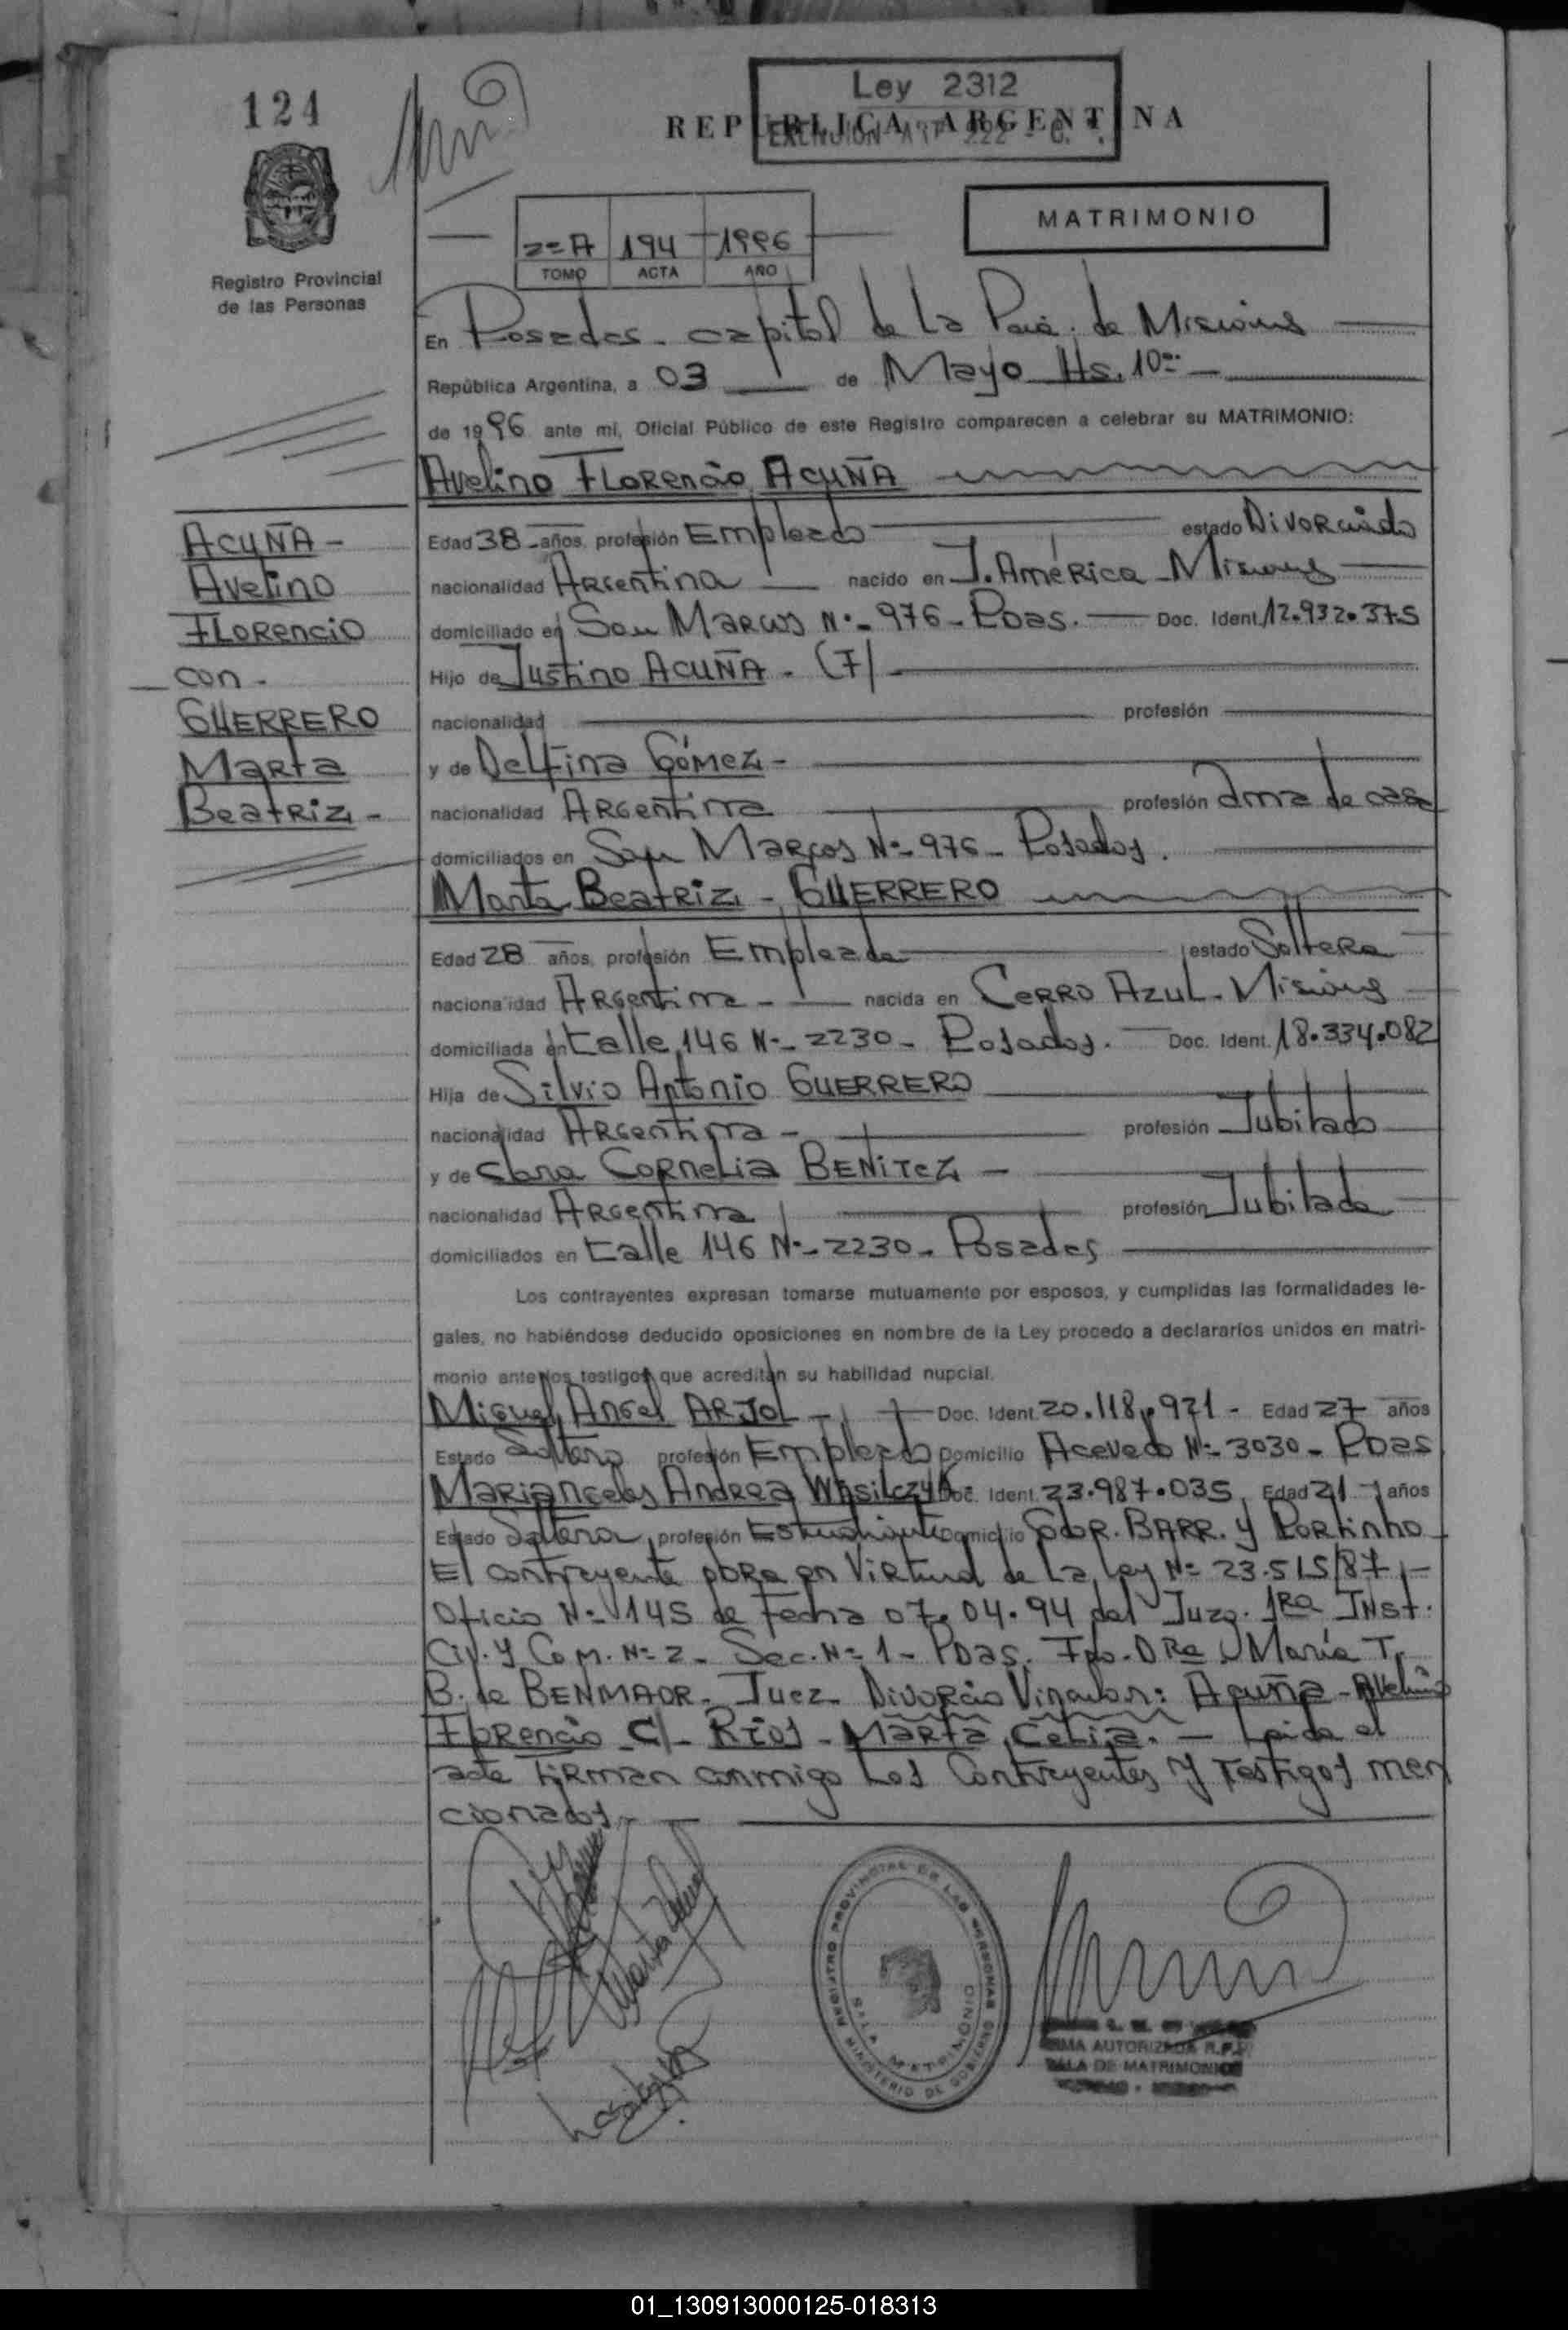 124
Ley 2312
REPUBLICA ARGENTINA
MATRIMONIO
2º A 194 1996
TOMO ACTA AÑO
Registro Provincial
de las Personas
En Posadas - capital de La Pcia. de Misiones
República Argentina, a 03 de Mayo Hs. 10
de 1996 ante mi, Oficial Público de este Registro comparecen a celebrar su MATRIMONIO:
Avelino Florencio ACUÑA
ACUÑA -
Avelino
Florencio
con -
GUERRERO
Marta
Beatriz -
Edad 38 - años, profesión Empleado estado Divorciado
nacionalidad Argentina nacido en J. América - Misiones
domiciliado en San Marcos Nº - 976 - Pdas. - Doc. Ident. 12.932.375
Hijo de Justino ACUÑA - (F)
nacionalidad profesión
y de Delfina Gómez -
nacionalidad Argentina profesión Ama de casa
domiciliados en San Marcos Nº - 976 - Posadas.
Marta Beatriz - GUERRERO
Edad 28 años, profesión Empleada estado Soltera
nacionalidad Argentina - nacida en Cerro Azul - Misiones
domiciliada en Calle 146 Nº - 2230 - Posadas. - Doc. Ident. 18.334.082
Hija de Silvio Antonio GUERRERO
nacionalidad Argentina - profesión Jubilado
y de Clara Cornelia BENITEZ -
nacionalidad Argentina profesión Jubilada
domiciliados en Calle 146 Nº - 2230 - Posadas
Los contrayentes expresan tomarse mutuamente por esposos, y cumplidas las formalidades le-
gales, no habiéndose deducido oposiciones en nombre de la Ley procedo a declararlos unidos en matri-
monio ante los testigos que acreditan su habilidad nupcial.
Miguel Angel ARJOL - Doc. Ident. 20.118.971 - Edad 27 años
Estado Soltero profesión Empleado Domicilio Acevedo Nº - 3030 - Pdas
Mariangeles Andrea Wasilczyk - Doc. Ident. 23.987.035, Edad 21 - años
Estado Soltera, profesión Estudiante Domicilio Gdor. BARR. y Portinho
El contrayente obra en Virtud de La Ley Nº 23.515/87, -
Oficio Nº 145 de Fecha 07.04.94 del Juzg. 1ra Inst.
Civ. y Com. Nº 2 - Sec. Nº 1 - Pdas. Fdo. Dra. María T.
B. de BENMAOR - Juez - Divorcio Vincular: Acuña - Avelino
Florencio C/ Rios - Marta Celia. - Leida el
acta Firman conmigo Los Contrayentes y Testigos men
cionados. -
REGISTRO PROVINCIAL DE LAS PERSONAS
MINISTERIO DE GOBIERNO
SALA MATRIMONIO
FIRMA AUTORIZADA R.P.P.
SALA DE MATRIMONIOS
01_130913000125-018313